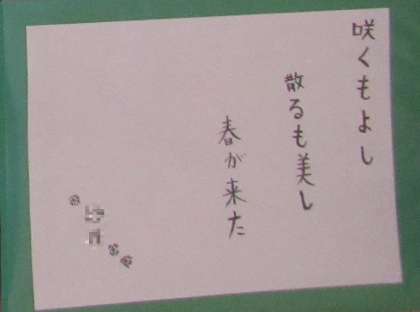 咲くもよし
散るも美し
春が来た